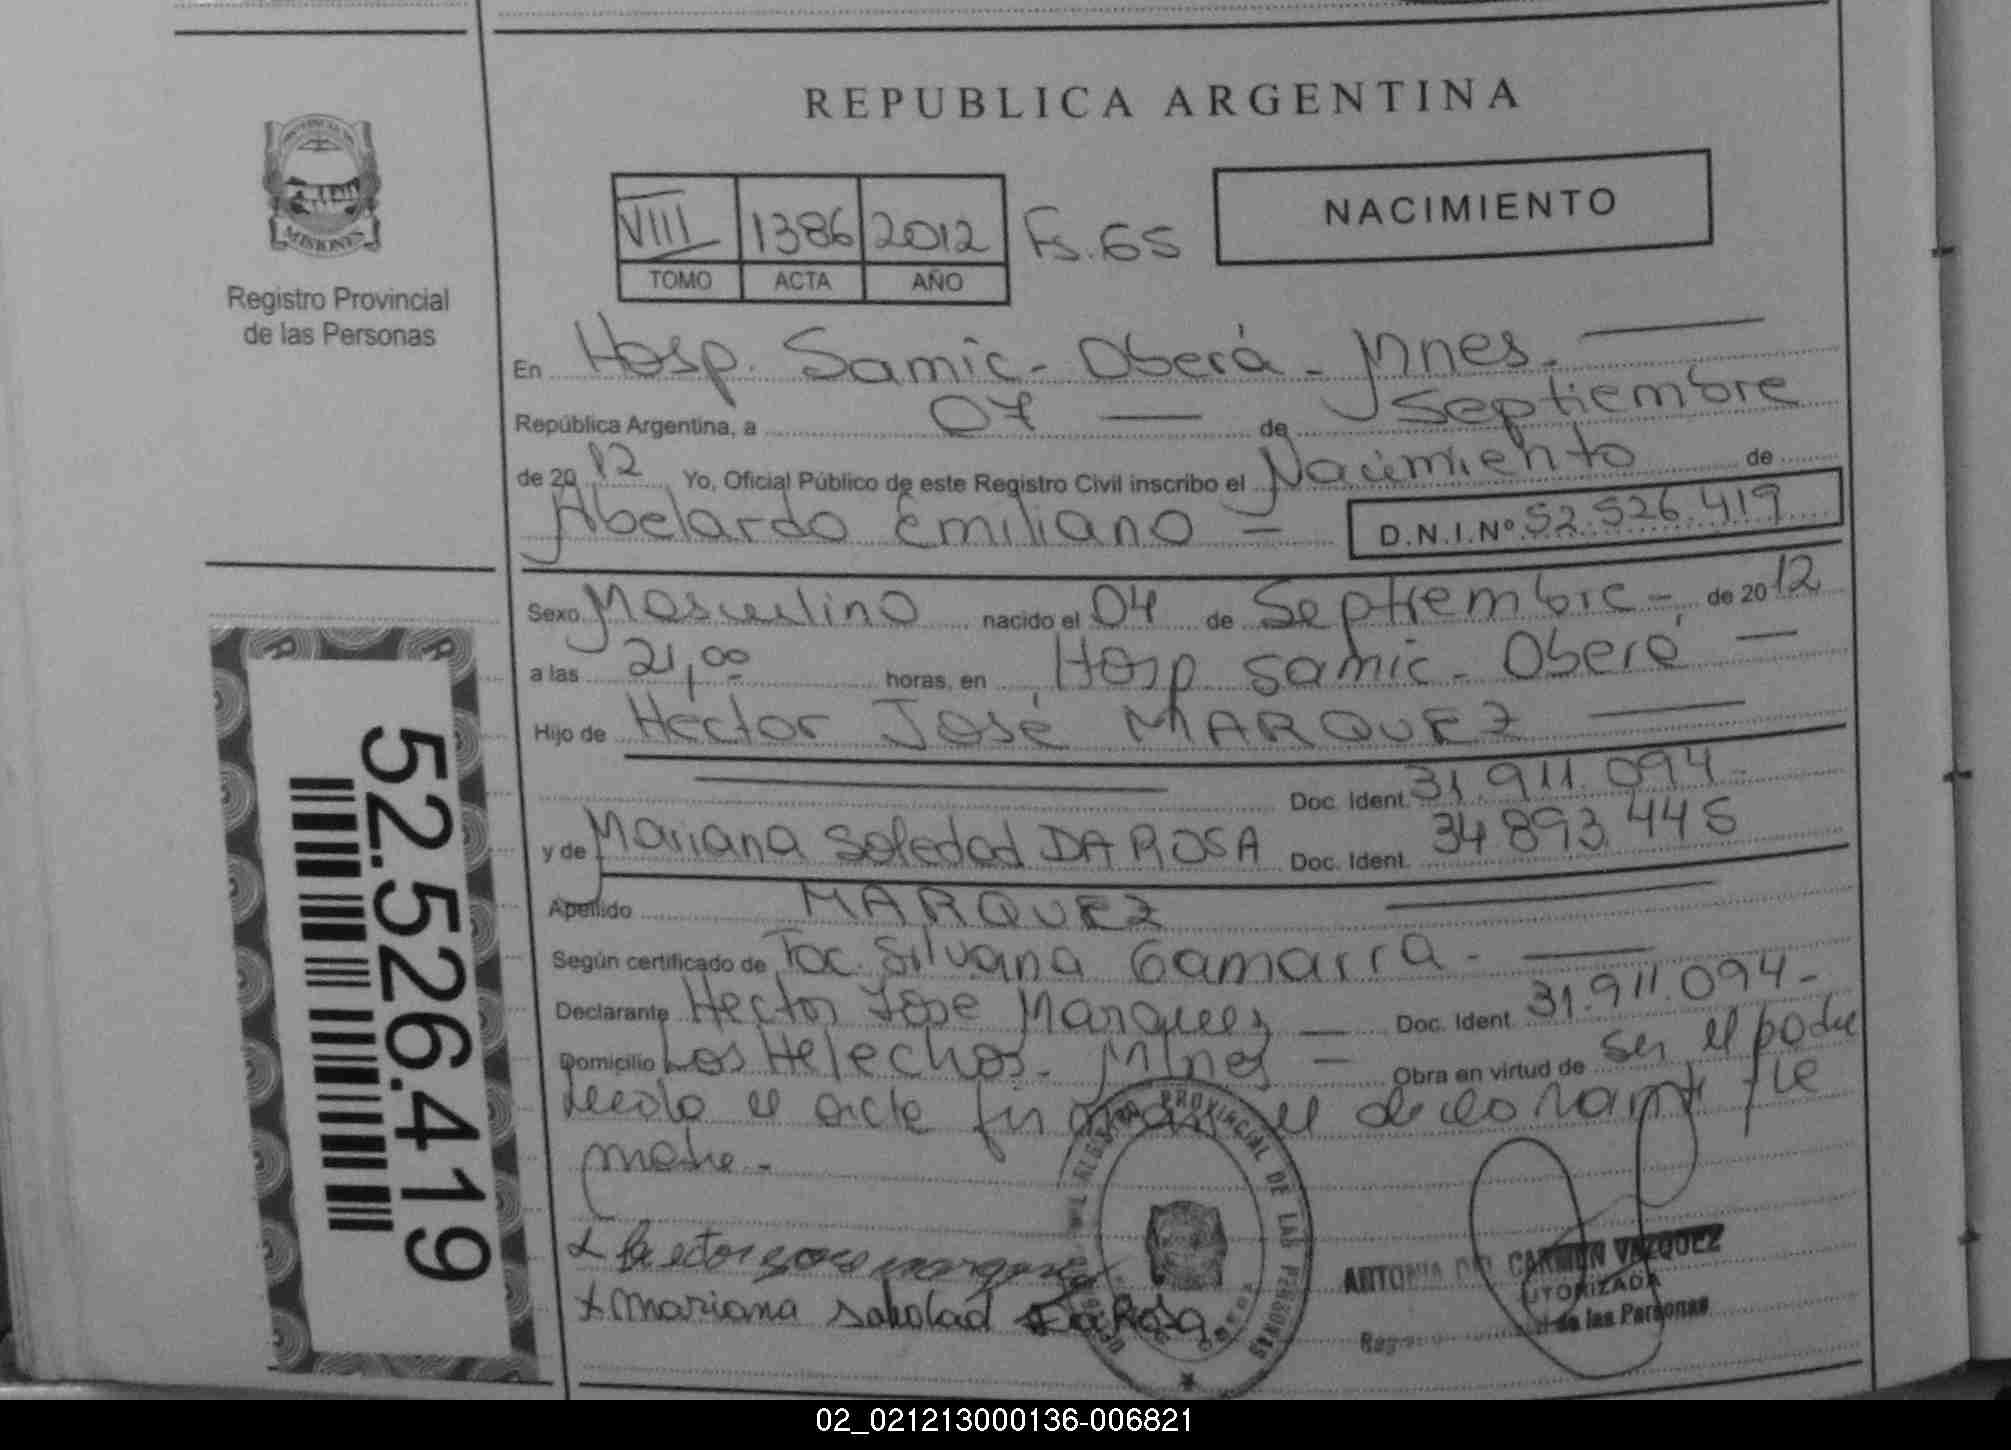 REPUBLICA ARGENTINA
PROVINCIA DE
MISIONES
Registro Provincial
de las Personas
VIII 1386 2012 Fs. 65
TOMO ACTA AÑO
NACIMIENTO
En Hosp. Samic - Oberá - Mnes.
República Argentina, a 07 de Septiembre
de 2012 Yo, Oficial Público de este Registro Civil inscribo el Nacimiento de
Abelardo Emiliano = D.N.I.Nº 52.526.419
Sexo Masculino nacido el 04 de Septiembre - de 2012
a las 21,00 horas, en Hosp Samic - Oberá
Hijo de Héctor José MARQUEZ
Doc. Ident. 31.911.094 -
y de Mariana Soledad DA ROSA Doc. Ident. 34.893.445
Apellido MARQUEZ
Según certificado de Toc. Silvana Gamarra -
Declarante Hector Jose Marquez Doc. Ident. 31.911.094 -
Domicilio Los Helechos - Mnes = Obra en virtud de ser el padre
leida el acta el declarante
madre -
x hector marquez
x mariana soledad Da Rosa
REGISTRO PROVINCIAL DE LAS PERSONAS
ANTONIA DEL CARMEN VAZQUEZ
AUTORIZADA
de las Personas
52.526.419
02_021213000136-006821